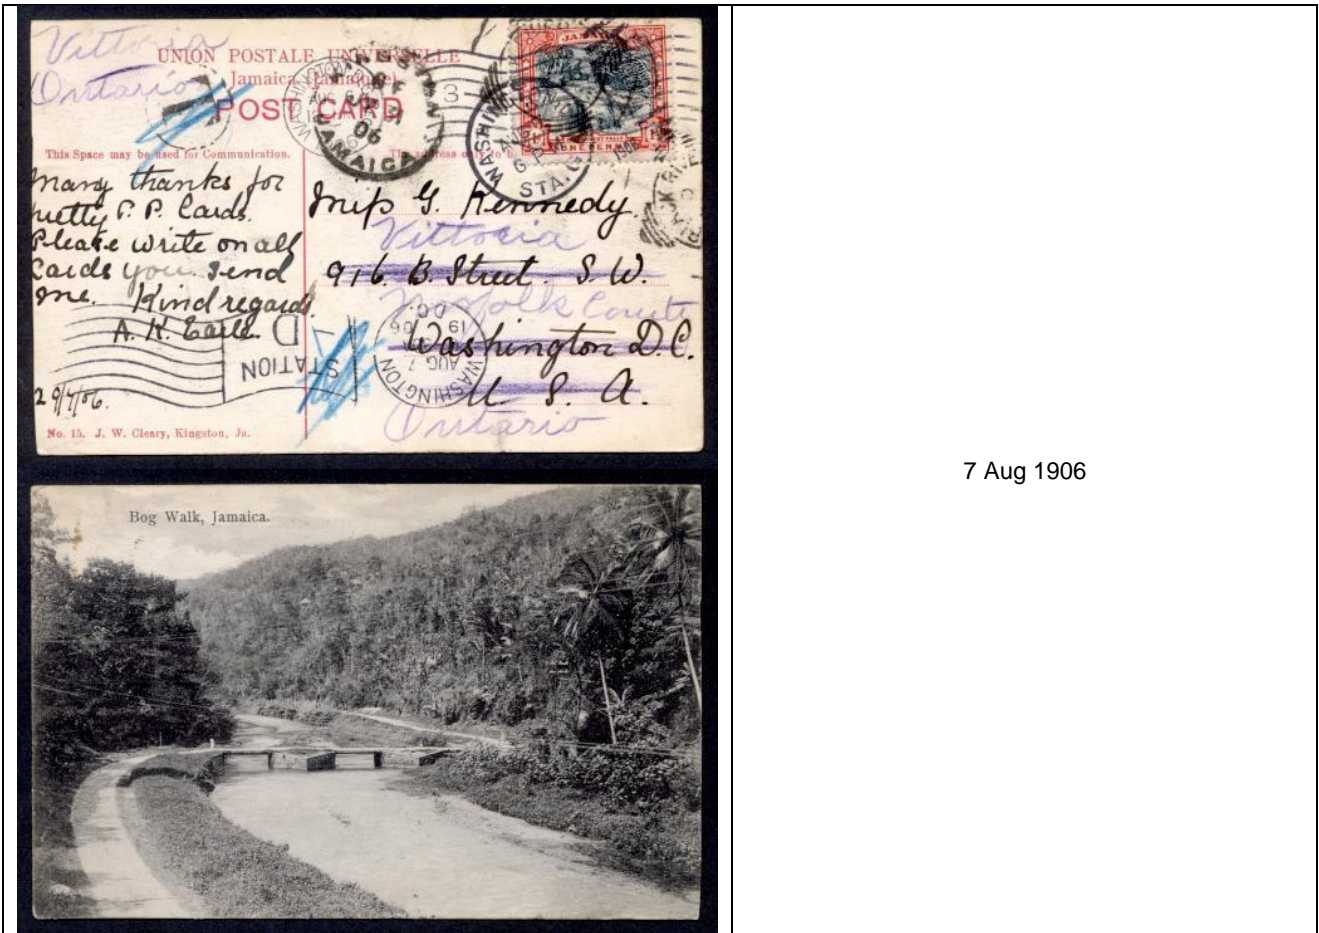 Vittoria
Ontario
UNION POSTALE UNIVERSELLE
Jamaica (Jamaique)
POST CARD
This Space may be used for Communication.
The address only to b
many thanks for
pretty P. P. Cards.
Please write on all
Cards you send
me. Kind regards.
A. K. Earle
29/7/06.
Miss G. Kennedy
Vittoria
916. B. Street. S. W.
Norfolk County
Washington D.C.
U. S. A.
Ontario
JAMAICA
ONE PENNY
KINGSTON
06
JAMAICA
WASHINGTON
AUG
6 P
STA. G
1906
3
STATION
D
WASHINGTON
AUG 7
19 06
D.C.
No. 15. J. W. Cleary, Kingston, Ja.
Bog Walk, Jamaica.
7 Aug 1906